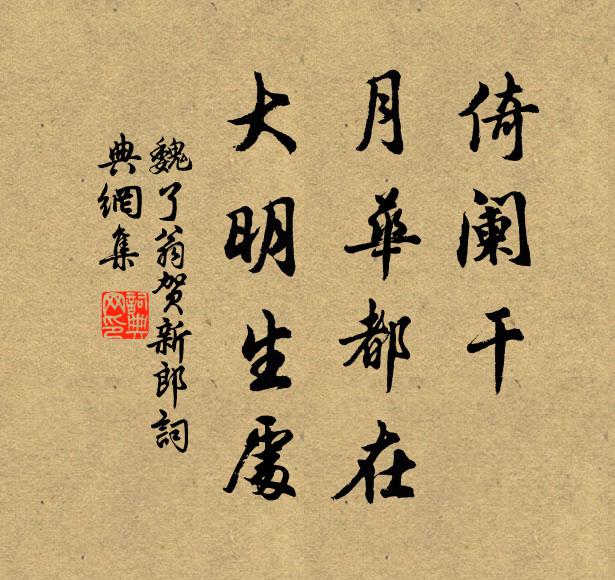 倚阑干
月華都在
大明生處
魏了翁贺新郎詞
典網集
詞典网印